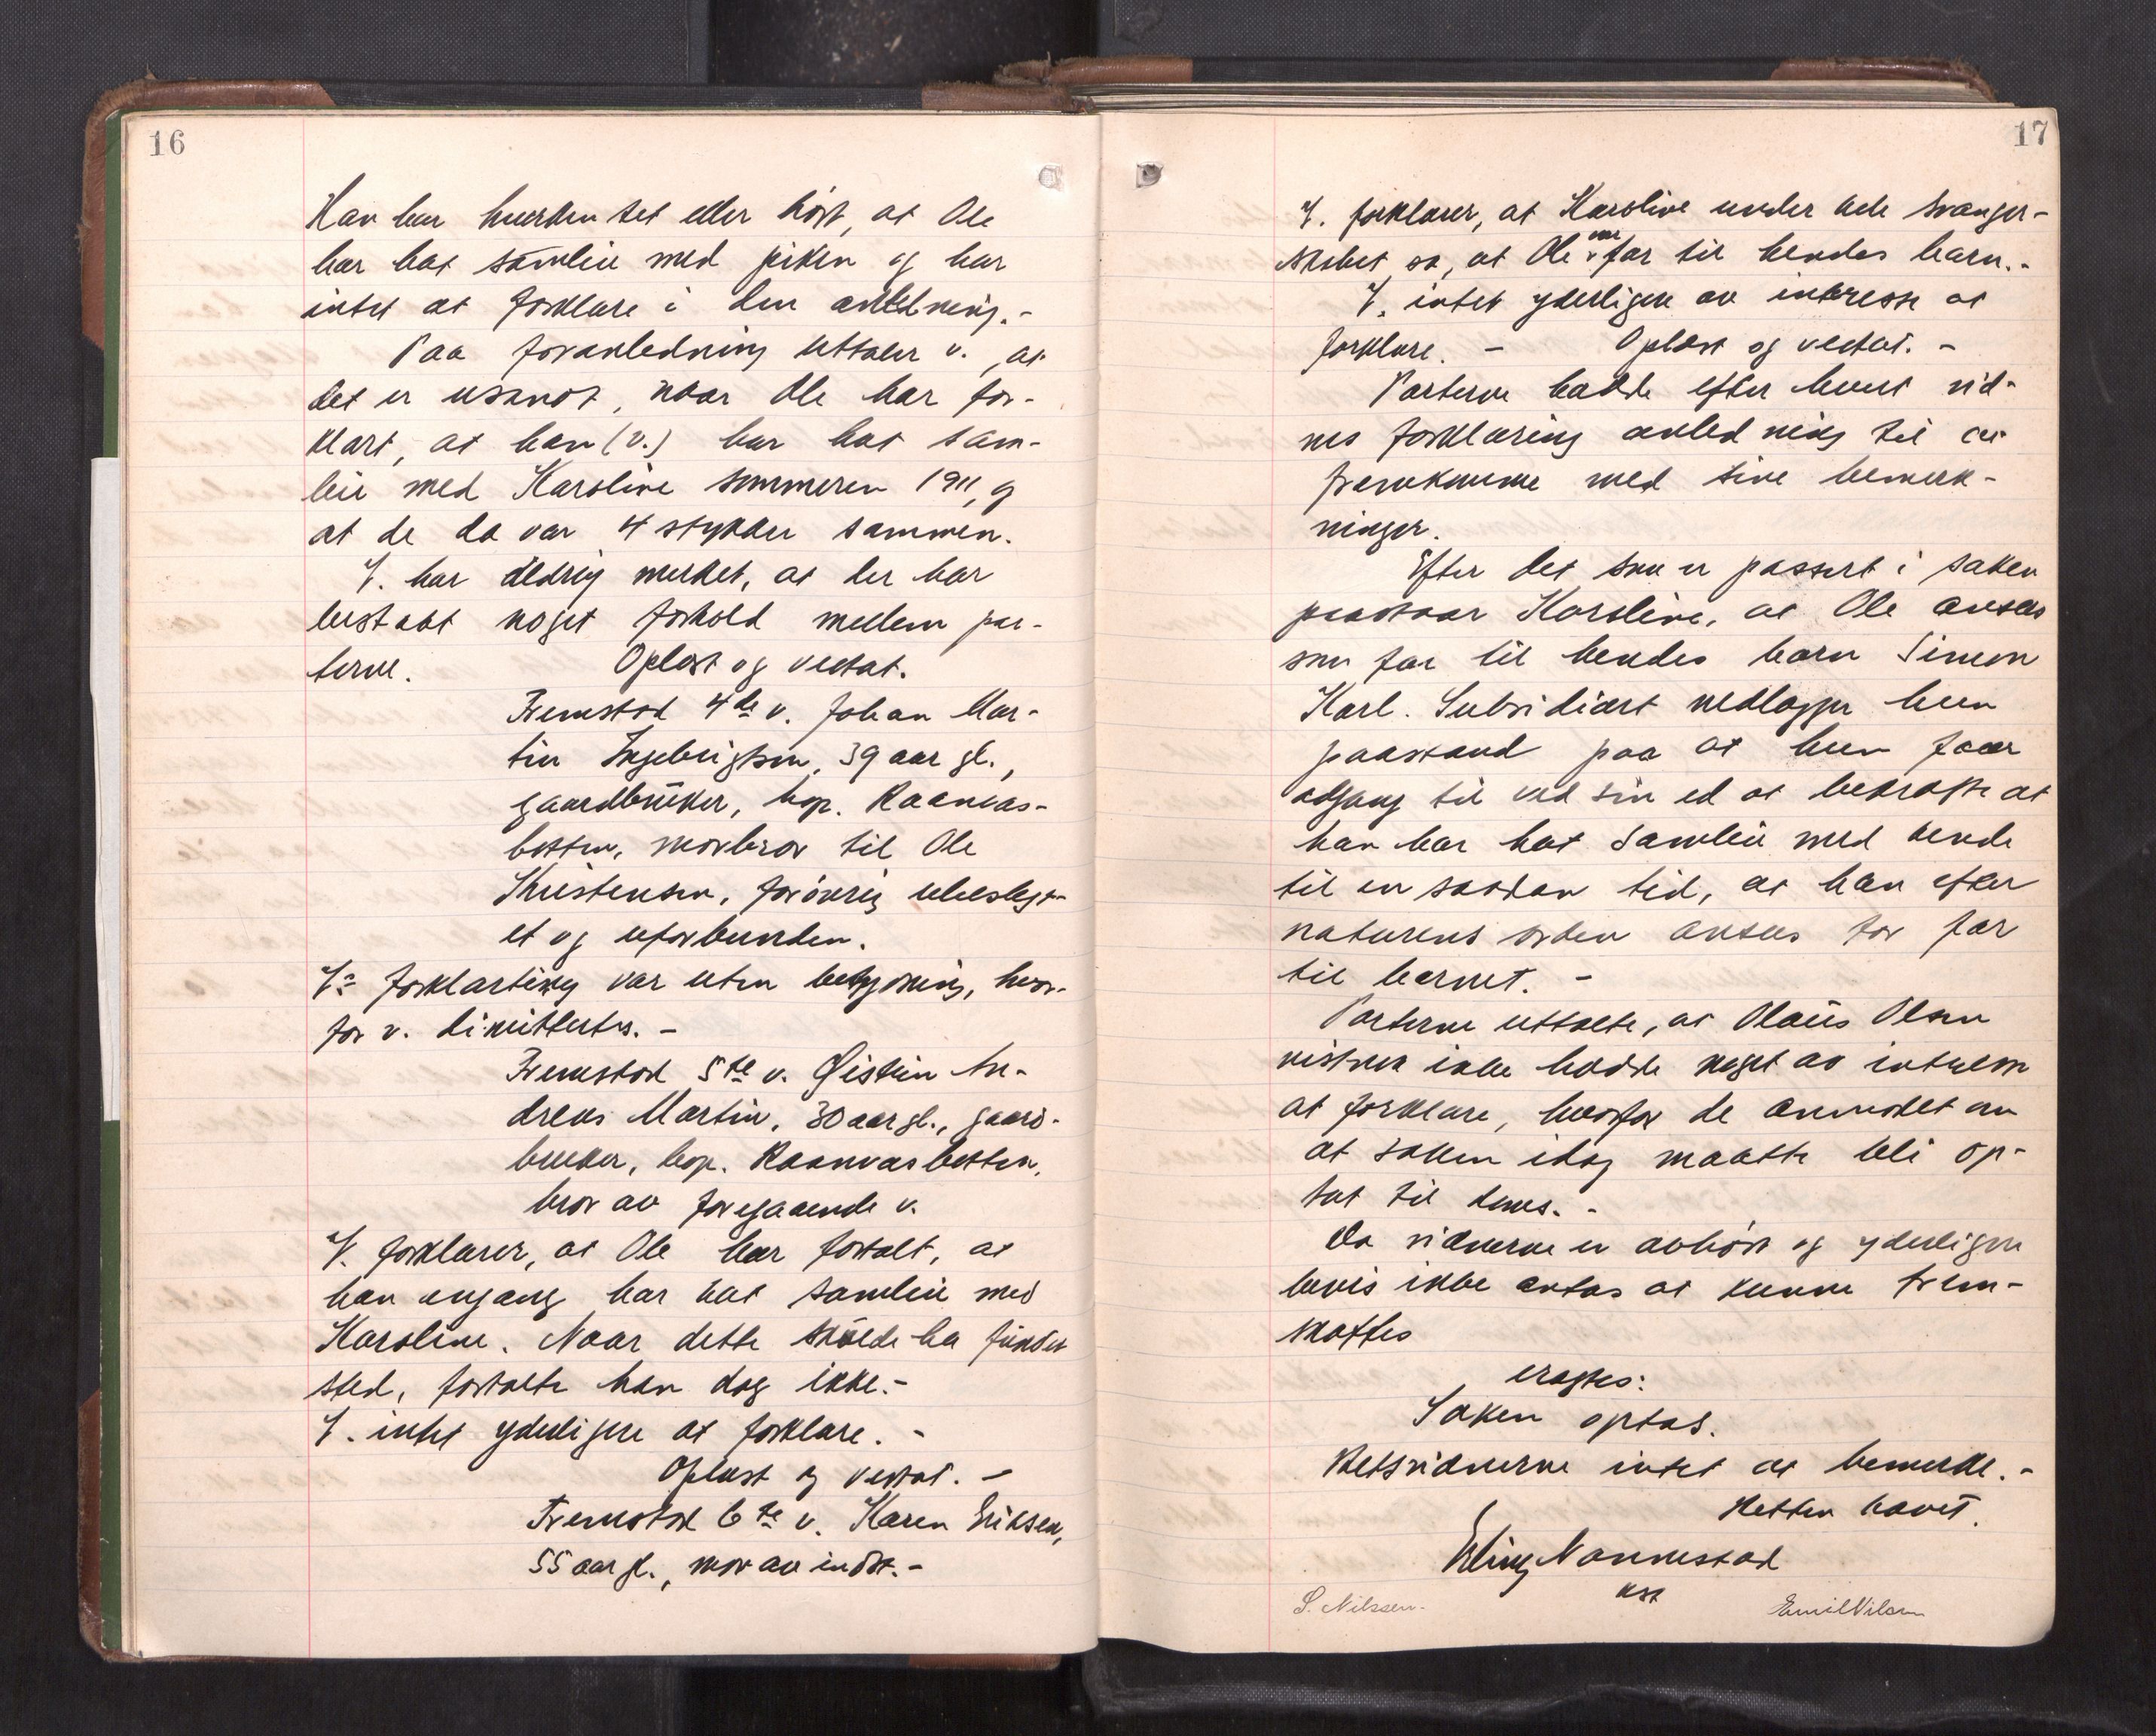 16
Han har hverken set eller hört, at Ole
har hat samleie med piken og har
intet at forklare i den anledning.-
Paa foranledning uttaler v., at
det er usandt, naar Ole har for-
klart, at han (v.) har hat sam-
leie med Karoline sommeren 1911, og
at de da var 4 stykker sammen.
V. har aldrig merket, at der har
bestaat noget forhold mellem par-
terne. Oplæst og vedtat.
Fremstod 4de v. Johan Mar-
tin Ingebrigtsen, 39 aar gl.,
gaardbruker, bop. Raanvas-
botten, morbror til Ole
Kristensen, forövrig ubeslegt-
et og uforbunden.
V.s forklaring var uten betydning, hvor-
for v. dimittertes. -
Fremstod 5te v. Øistein An-
dreas Martin, 30 aar gl., gaard-
bruker, bop. Raanvasbotten,
bror av foregaaende v.
V. forklarer, at Ole har fortalt, at
han engang har hat samleie med
Karoline. Naar dette skulde ha fundet
sted, fortalte han dog ikke.-
V. intet yderligere at forklare. -
Oplæst og vedtat. -
Fremstod 6te v. Karen Eriksen,
55 aar gl., mor av indst.-
17
V. forklarer, at Karoline under hele svanger-
skabet sa, at Ole var far til hendes barn.-
V. intet yderligere av interesse at
forklare. - Oplæst og vedtat. -
Parterne hadde efter hvert vid-
nes forklaring anledning til at
fremkomme med sine bemerk-
ninger.
Efter det som er passert i saken
paastaar Karoline, at Ole ansees
som far til hendes barn Simon
Karl. Subsidiært nedlægger hun
paastand paa at hun faar
adgang til ved sin ed at bekræfte at
han har hat samleie med hende
til en saadan tid, at han efter
naturens orden ansees for far
til barnet. -
Parterne uttalte, at Olaus Olsen
vistnok ikke hadde noget av interesse
at forklare, hvorfor de anmodet om
at saken idag maatte bli op-
tat til doms. -
Da vidnerne er avhört og yderligere
bevis ikke antas at kunne frem-
skaffes
eragtes:
Saken optas.
Retsvidnerne intet at bemerke.-
Retten hævet.
Erling Nannestad
kst
S. Nilssen. Emil Nilsen